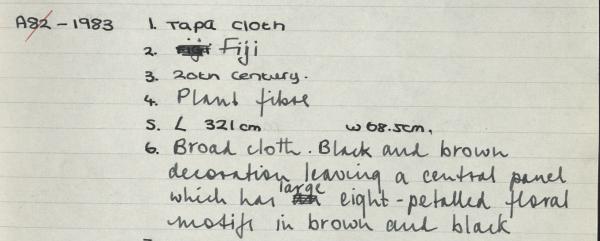 A82-1983 1. Tapa cloth
2. Fiji
3. 20th century.
4. Plant fibre
5. L 321cm w 68.5cm,
6. Broad cloth. Black and brown
decoration leaving a central panel
which has large eight-petalled floral
motifs in brown and black